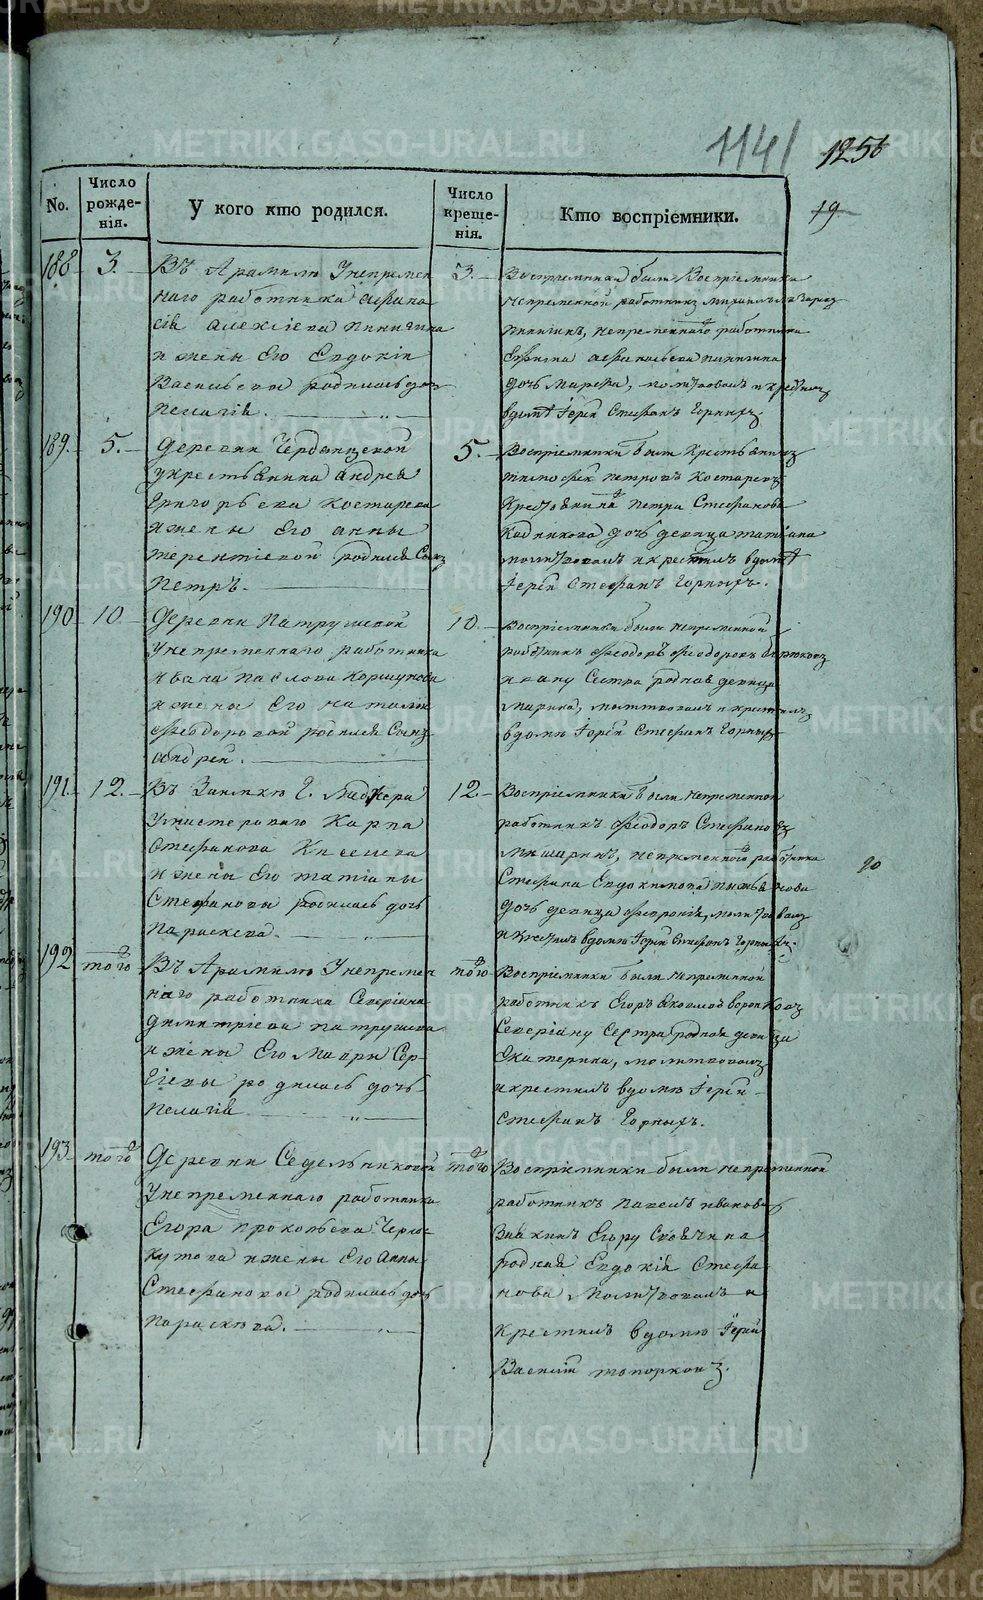 METRIKI.GASO-URAL.RU
1141
125б
19
No.
Число рожде-нія.
У кого кто родился.
Число креще-нія.
Кто воспріемники.
188
3.
Въ Арамилѣ Унепремен
наго работника Афана
сія Алексіева Пинигина
и жены Его Евдокіи
Васильевы родилась доч
Пелагія.
3.
Непременной работникъ Михаилъ
Пинигинъ, непременнаго работника
Пинигина
дочь Марфа, молитвовалъ и крестилъ
вдомѣ Іерей Стефанъ Горныхъ.
189.
5.
Деревни
Укрестьянина Андрея
Григорьева Костарева
и жены Его Анны
Терентіевой родился Сынъ
Петръ.
5.
Воспріемники были Крестьянинъ
Тимофей Петровъ Костаревъ
Крестьянина Петра Стефанова
Кадникова дочь девица Татіана
молитвовалъ и крестилъ вдомѣ
Іерей Стефанъ Горныхъ.
190
10
Деревни Патрушевой
Унепременнаго работника
Ивана Павлова Коршунова
и жены Его Наталіи
Феодоровой родился Сынъ
Андрей.
10.
Воспріемники были непременной
работникъ Феодоръ Феодоровъ Бирюковъ
Ивану Сестра родная девица
Марина, молитвовалъ и крестилъ
вдомѣ Іерей Стефанъ Горныхъ
191.
12.
Въ Заимкѣ Г.
Умастероваго Карпа
Стефанова Киселева
и жены Его Татіаны
Стефановы родилась дочь
Параскева.
12.
Воспріемники были непременной
работникъ Феодоръ Стефановъ
Мишаринъ, непременнаго работника
Стефана Евдокимова
дочь девица Февронія, молитвовалъ
и крестилъ вдомѣ Іерей Стефанъ Горныхъ.
20
192
того
Въ Арамилѣ Унепремен
наго работника Северіана
Димитріева Патрушева
и жены Его Мавры Сер-
гіевы родилась дочь
Пелагія
того
Воспріемники были непременной
работникъ Егоръ Воронковъ
Северіану Сестра родная девица
Екатерина, молитвовалъ
и крестилъ вдомѣ Іерей
Стефанъ Горныхъ.
193
того
Деревни Седельниковой
Унепременнаго работника
Егора Прокопьева Черно-
кутова и жены Его Анны
Стефановы родилась дочь
Параскева.
того
Воспріемники были непременной
работникъ Павелъ Ивановъ
Зыкинъ Егору
родная Евдокія Стефа
нова, молитвовалъ и
крестилъ вдомѣ Іерей
Василій Топорковъ.